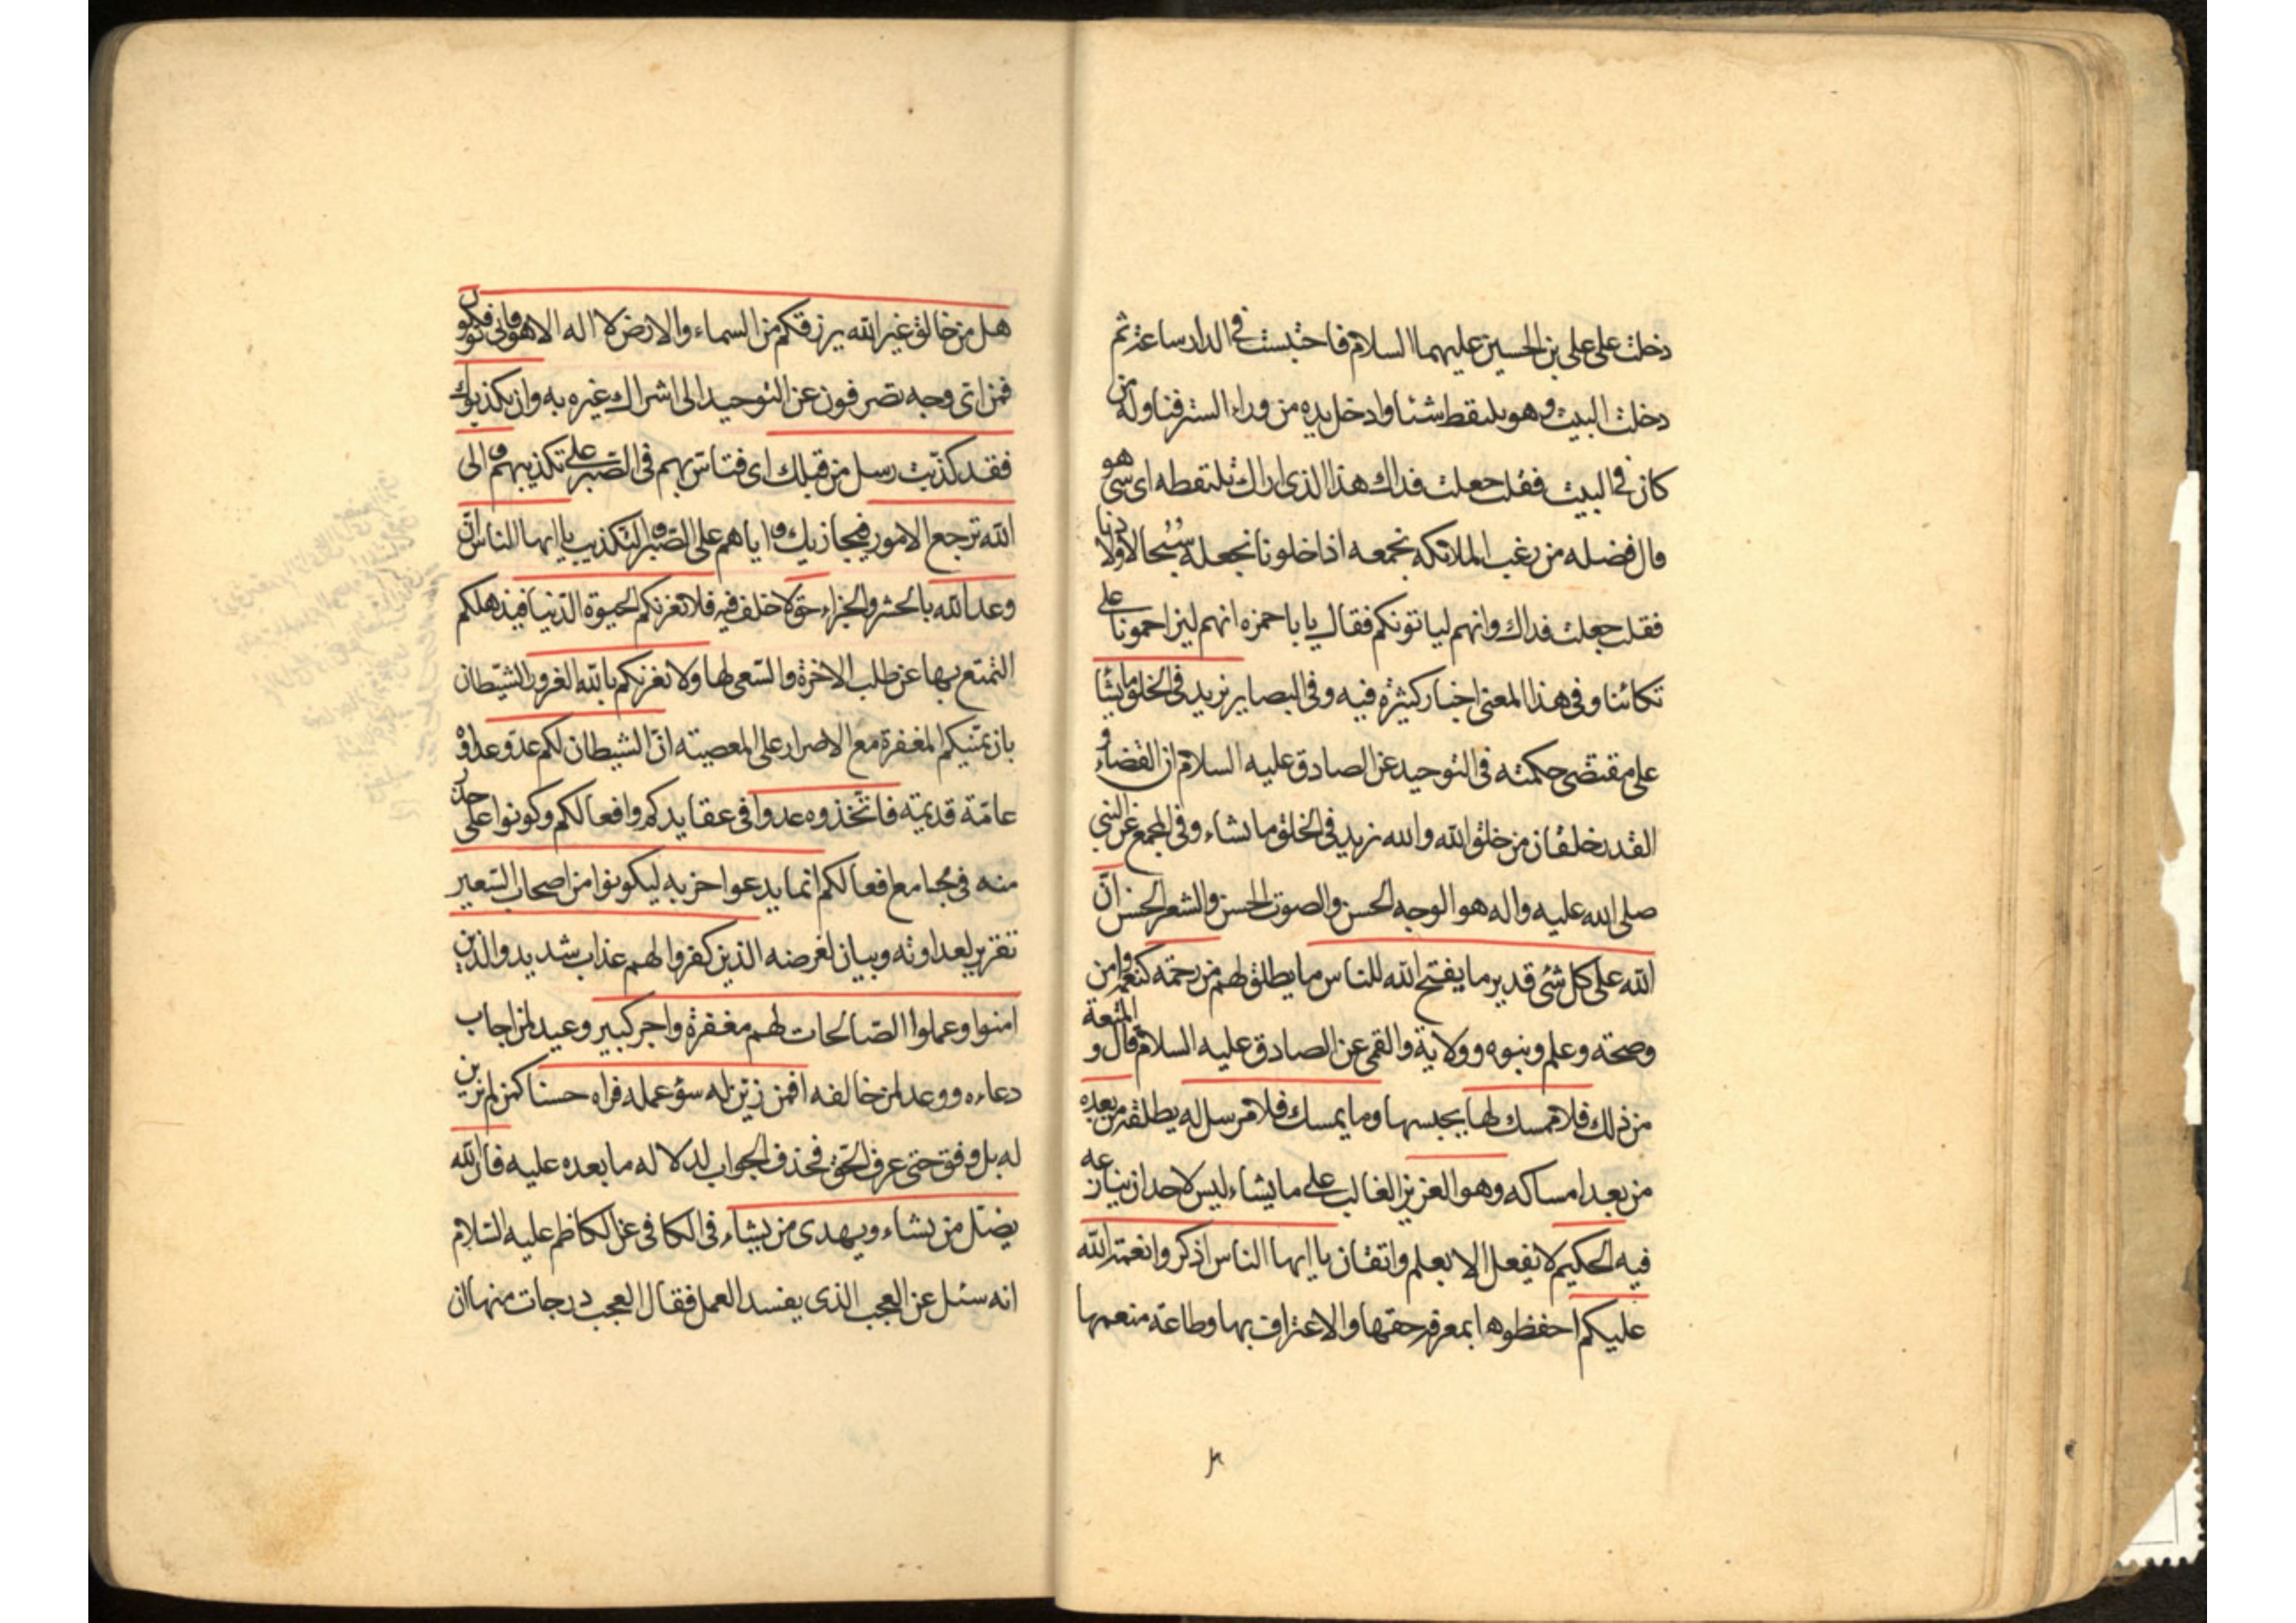 دخلت على علي بن الحسين عليهما السلام فاحتبست في الدار ساعة ثم
دخلت البيت وهو يلتقط شئا وادخل يده من وراء الستر فناوله من
كان في البيت فقلت جعلت فداك هذا الذي اراك تلتقطه اى شئ هو
قال فضله من زغب الملائكه نجمعه اذا خلونا نجعله سبحا لاولادنا
فقلت جعلت فداك وانهم لياتونكم فقال يا با حمزه انهم ليزاحمونا على
تكائنا وفي هذا المعنى اخبار كثيرة فيه وفي البصاير يزيد في الخلق ما يشاء
على مقتضى حكمته في التوحيد عن الصادق عليه السلام ان القضاء و
القدر خلقان من خلق الله والله يزيد في الخلق ما يشاء وفي المجمع عن النبي
صلى الله عليه واله هو الوجه الحسن والصوت الحسن والشعر الحسن ان
الله على كل شئ قدير ما يفتح الله للناس ما يطلق لهم من رحمة كنعمة وامن
وصحة وعلم ونبوه وولاية والقمي عن الصادق عليه السلام قال و المتعة
من ذلك فلا ممسك لها يحبسها وما يمسك فلا مرسل له يطلقه من بعده
من بعد امساكه وهو العزيز الغالب على ما يشاء ليس لاحد ان ينازعه
فيه الحكيم لا يفعل الا بعلم واتقان يا ايها الناس اذكروا نعمة الله
عليكم احفظوها بمعرفة حقها والاعتراف بها وطاعة منعمها
هل من خالق غير الله يرزقكم من السماء والارض لا اله الا هو فانى تؤفكون
فمن اى وجه تصرفون عن التوحيد الى اشراك غيره به وان يكذبوك
فقد كذبت رسل من قبلك اى فتاس بهم في الصبر على تكذيبهم والى
الله ترجع الامور فيجازيك واياهم على الصبر والتكذيب يا ايها الناس ان
وعد الله بالحشر والجزاء حق لا خلف فيه فلا تغرنكم الحيوة الدنيا فيذهلكم
التمتع بها عن طلب الاخرة والسعى لها ولا يغرنكم بالله الغرور الشيطان
بان يمنيكم المغفرة مع الاصرار على المعصيته ان الشيطان لكم عدو عداوة
عامة قديمة فاتخذوه عدوا في عقايدكم وافعالكم وكونوا على حذر
منه في مجامع افعالكم انما يدعوا حزبه ليكونوا من اصحاب السعير
تقرير لعداوته وبيان لغرضه الذين كفروا لهم عذاب شديد والذين
امنوا وعملوا الصالحات لهم مغفرة واجر كبير وعيد لمن اجاب
دعاءه ووعد لمن خالفه افمن زين له سوء عمله فراه حسنا كمن لم يزين
له بل وفق حتى عرف الحق فحذف الجواب لدلاله ما بعده عليه فان الله
يضل من يشاء ويهدى من يشاء في الكافي عن الكاظم عليه السلام
انه سئل عن العجب الذى يفسد العمل فقال العجب درجات منها ان